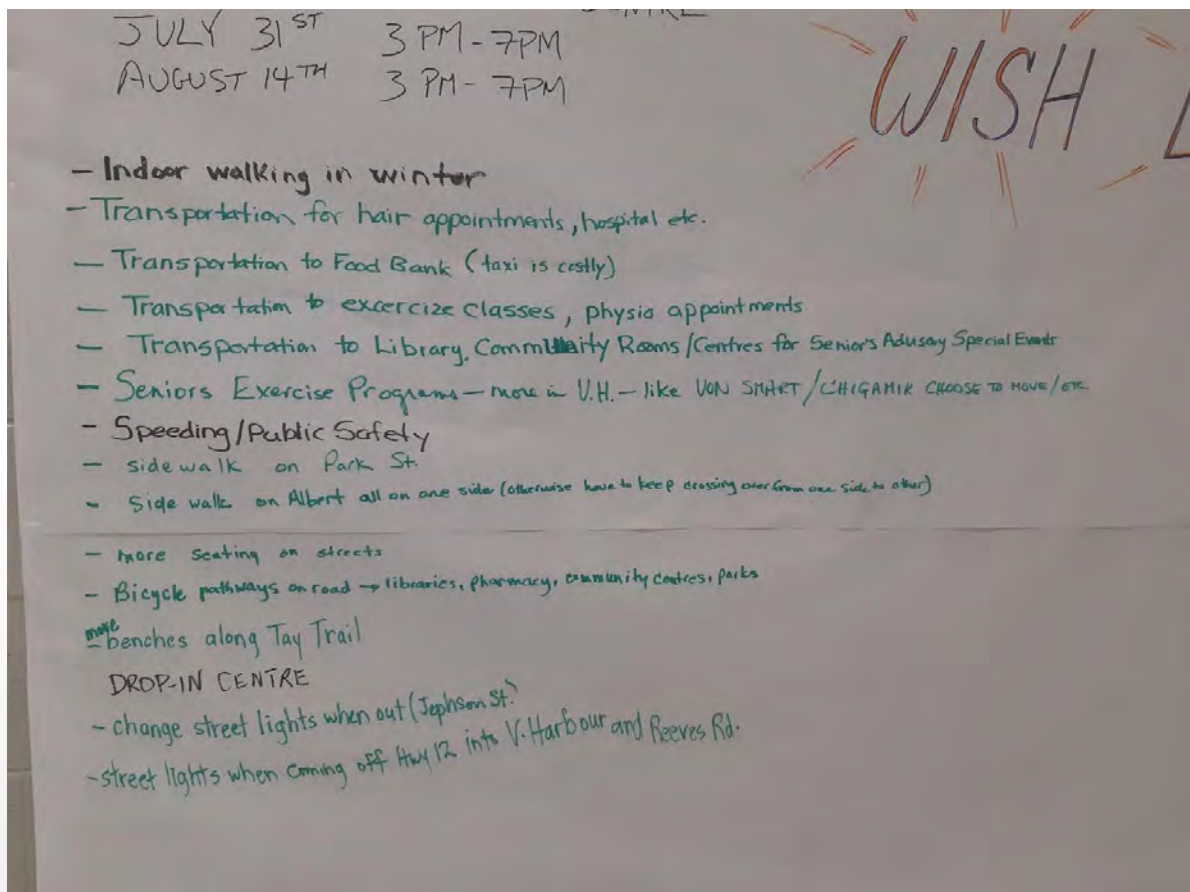 JULY 31ST 3 PM - 7PM
AUGUST 14TH 3 PM - 7PM
WISH
- Indoor walking in winter
- Transportation for hair appointments, hospital etc.
- Transportation to Food Bank (taxi is costly)
- Transportation to excercize classes, physio appointments
- Transportation to Library, Community Rooms/Centres for Senior's Advisory Special Events
- Seniors Exercise Programs - more in V.H. - like VON SMART/CHIGAMIK CHOOSE TO MOVE/ETC.
- Speeding/Public Safety
- sidewalk on Park St.
- Side walk on Albert all on one side (otherwise have to keep crossing over from one side to other)
- more seating on streets
- Bicycle pathways on road → libraries, pharmacy, community centres, parks
- more benches along Tay Trail
DROP-IN CENTRE
- change street lights when out (Jephson St.)
- street lights when coming off Hwy 12 into V. Harbour and Reeves Rd.